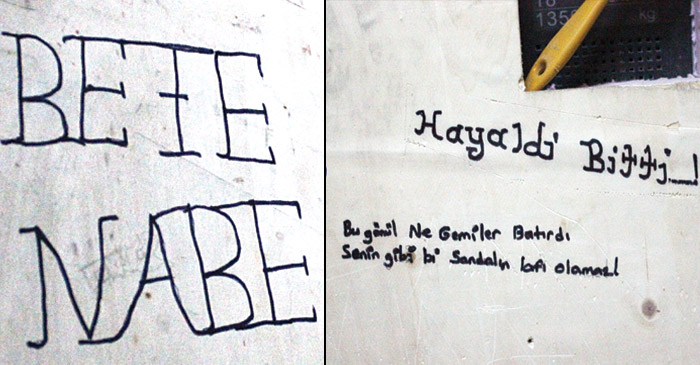 BETE
NABE
135
kg
Hayaldi Bitti...!
Bu gönül Ne Gemiler Batırdı
Senin gibi bi Sandalın lafı olamaz!